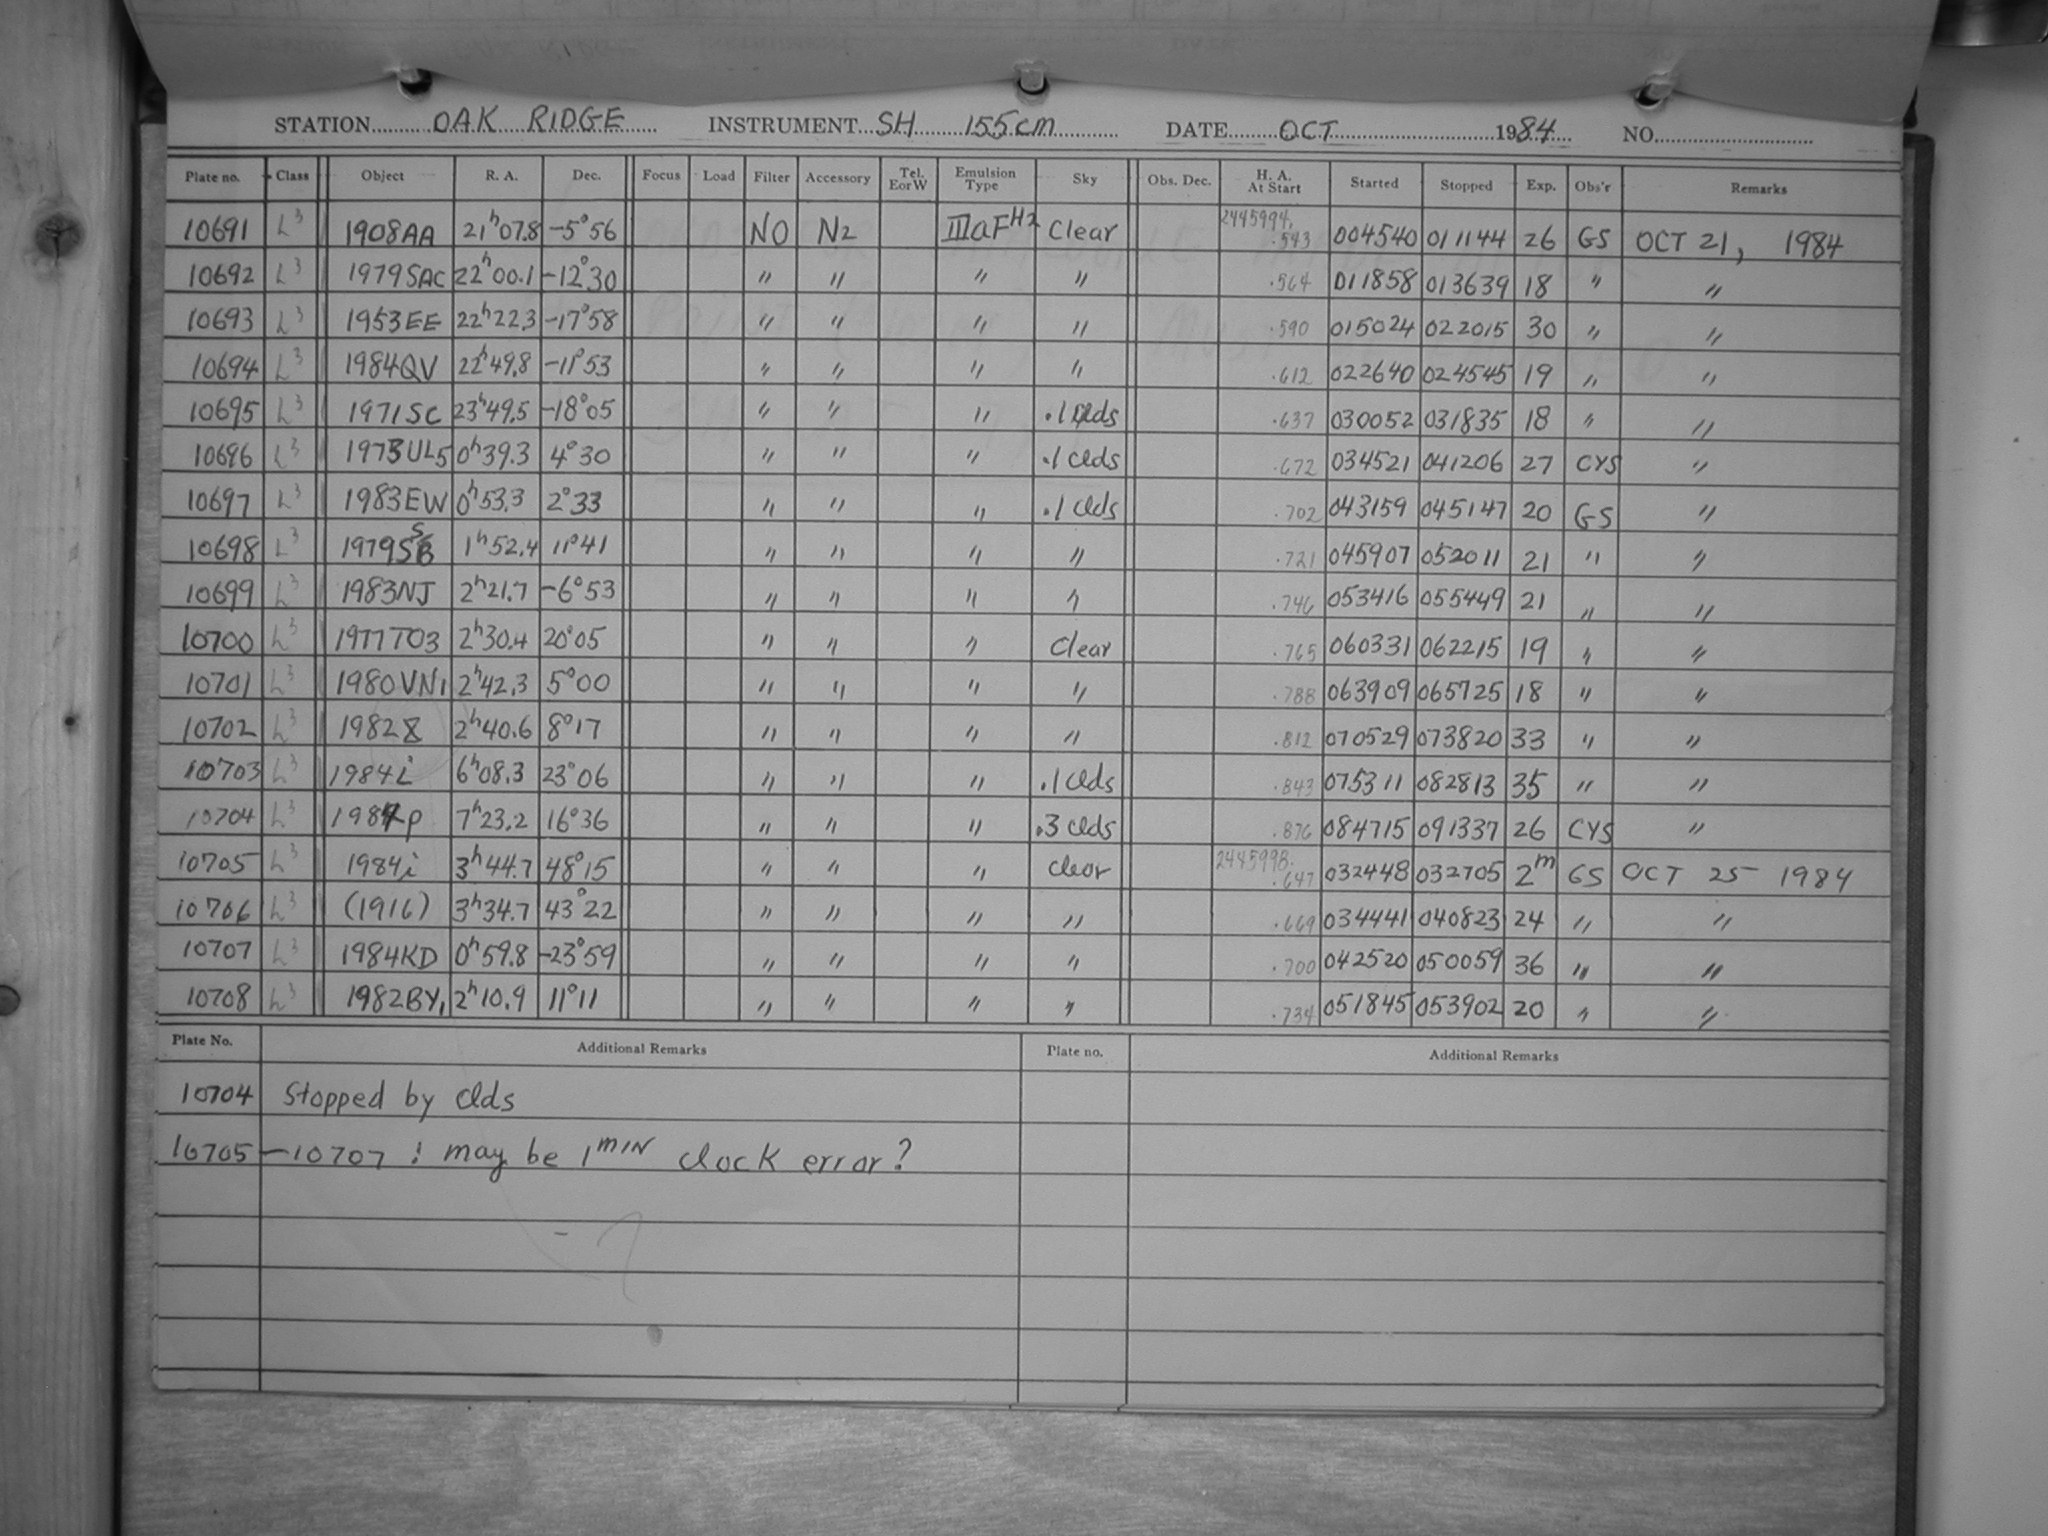 STATION OAK RIDGE INSTRUMENT SH 155cm DATE OCT 1984 NO.
Plate no. Class Object R. A. Dec. Focus Load Filter Accessory Tel. E or W Emulsion Type Sky Obs. Dec. H. A. At Start Started Stopped Exp. Obs'r Remarks
10691 L3 1908AA 21h07.8 -5°56 NO N2 IIIaF H2 Clear 2445994. .543 004540 011144 26 GS OCT 21, 1984
10692 L3 1979SAC 22h00.1 -12°30 " " " " .564 011858 013639 18 " "
10693 L3 1953EE 22h22.3 -17°58 " " " " .590 015024 022015 30 " "
10694 L3 1984QV 22h49.8 -11°53 " " " " .612 022640 024545 19 " "
10695 L3 1971SC 23h49.5 -18°05 " " " .1 clds .637 030052 031835 18 " "
10696 L3 1973UL5 0h39.3 4°30 " " " .1 clds .672 034521 041206 27 CYS "
10697 L3 1983EW 0h53.3 2°33 " " " .1 clds .702 043159 045147 20 GS "
10698 L3 1h52.4 11°41 " " " " .721 045907 052011 21 " "
10699 L3 1983NJ 2h21.7 -6°53 " " " " .746 053416 055449 21 " "
10700 L3 1977TO3 2h30.4 20°05 " " " Clear .765 060331 062215 19 " "
10701 L3 1980VN1 2h42.3 5°00 " " " " .788 063909 065725 18 " "
10702 L3 1982 2h40.6 8°17 " " " " .812 070529 073820 33 " "
10703 L3 1984i 6h08.3 23°06 " " " .1 clds .843 075311 082813 35 " "
10704 L3 1984p 7h23.2 16°36 " " " .3 clds .876 084715 091337 26 CYS "
10705 L3 1984i 3h44.7 48°15 " " " clear 2445998. .647 032448 032705 2m GS OCT 25 1984
10706 L3 (1916) 3h34.7 43°22 " " " " .669 034441 040823 24 " "
10707 L3 1984KD 0h59.8 -23°59 " " " " .700 042520 050059 36 " "
10708 L3 1982BY1 2h10.9 11°11 " " " " .734 051845 053902 20 " "
Plate No. Additional Remarks Plate no. Additional Remarks
10704 Stopped by clds
10705 - 10707 : may be 1 MIN clock error?